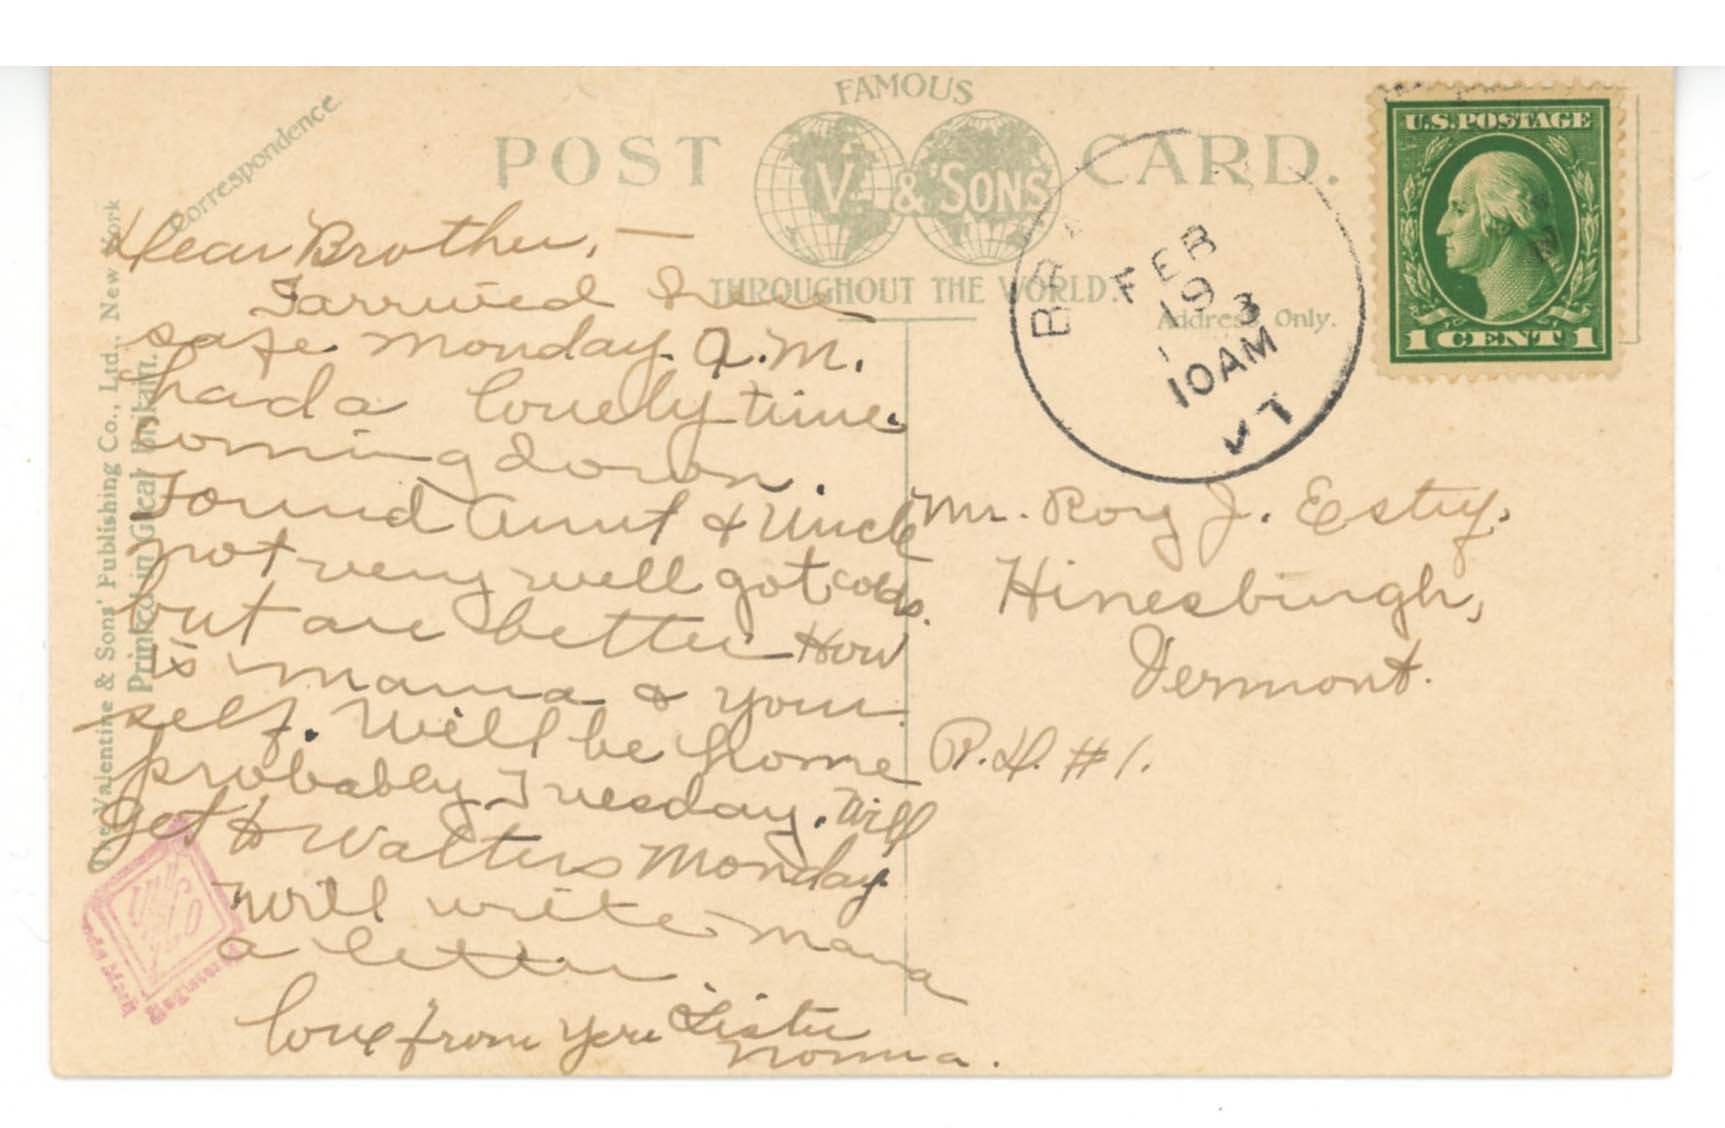 FAMOUS
POST CARD.
V. & SONS
THROUGHOUT THE WORLD.
Correspondence
Address Only.
The Valentine & Sons' Publishing Co., Ltd., New York
Printed in Great Britain.
U.S. POSTAGE
1 CENT 1
FEB
19
3
10AM
VT
Dear Brother, —
I arrived here
safe Monday. A.M.
had a lonely time.
coming down.
Found Aunt & Uncle
not very well got colds.
but are better How
is mama & your
self. Will be home
probably Tuesday. Will
get to Walters Monday
will write mama
a letter.
love from your Sister
Norma.
Mr. Roy J. Estey,
Hinesburgh,
Vermont.
R.D. #1.